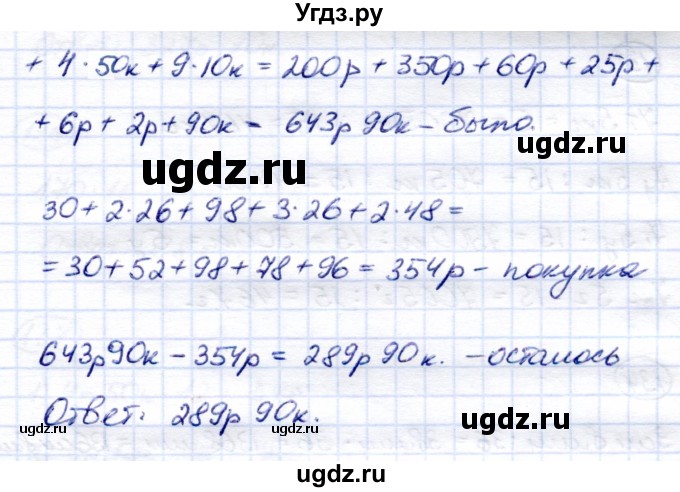 Угдз.ру
+ 4·50к + 9·10к = 200р + 350р + 60р + 25р +
+ 6р + 2р + 90к = 643р 90к – было.
ugdz.ru
ugdz.ru
30 + 2·26 + 98 + 3·26 + 2·48 =
= 30 + 52 + 98 + 78 + 96 = 354р – покупка
643р90к – 354р = 289р 90к. – осталось
ugdz.ru
Ответ: 289р 90к.
ugdz.ru
ugdz.ru
ugdz.ru